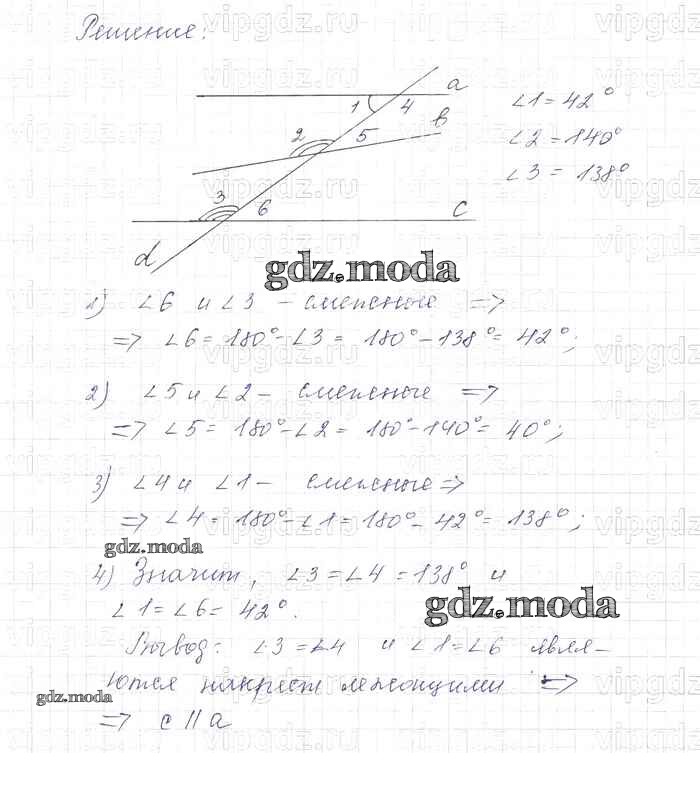 Решение:
a
1 4
b
2 5
3 6
c
d
∠1 = 42°
∠2 = 140°
∠3 = 138°
gdz.moda
1) ∠6 и ∠3 - смежные =>
=> ∠6 = 180° - ∠3 = 180° - 138° = 42°;
2) ∠5 и ∠2 - смежные =>
=> ∠5 = 180° - ∠2 = 180° - 140° = 40°;
3) ∠4 и ∠1 - смежные =>
=> ∠4 = 180° - ∠1 = 180° - 42° = 138°;
gdz.moda
4) Значит, ∠3 = ∠4 = 138° и
∠1 = ∠6 = 42°.
gdz.moda
Вывод: ∠3 = ∠4 и ∠1 = ∠6 явля-
ются накрест лежащими =>
gdz.moda
=> c || a